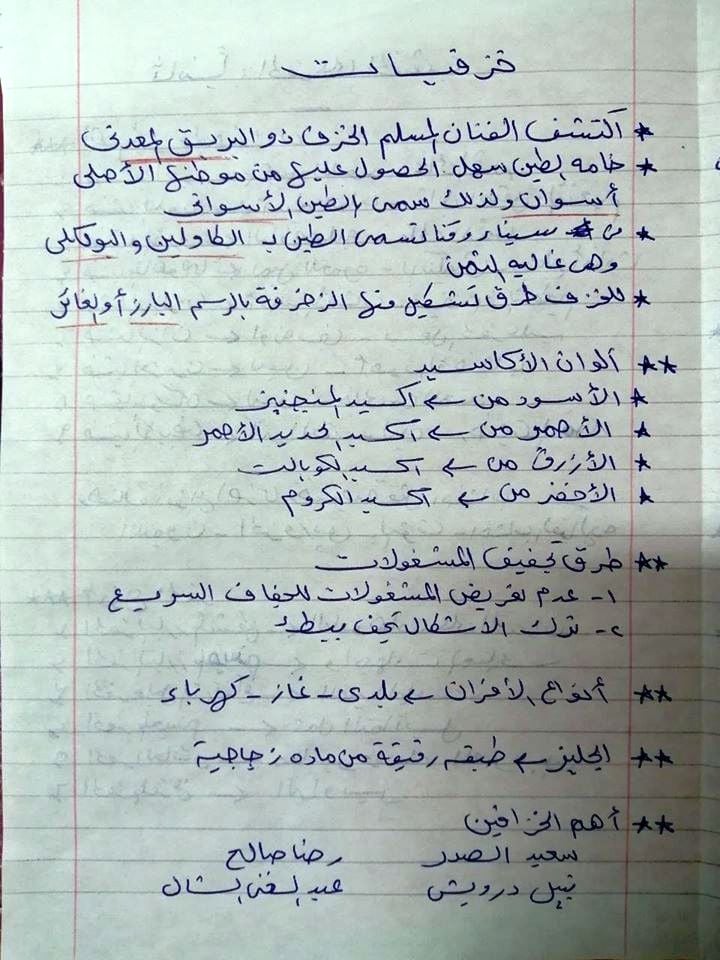 خزفيات
* اكتشف الفنان المسلم الخزف ذو البريق المعدنى
* خامه الطين سهل الحصول عليها من موطنها الأصلى
أسوان ولذلك سمى الطين الأسوانى
* سيناء وقنا تسمى الطين ب الكاولين والبوكلى
وهى غاليه الثمن
* للخزف طرق تشكيل منها الزخرفة بالرسم البارز أو الغائر
** ألوان الأكاسيد
* الأسود من ← اكسيد المنجنيز
* الأحمر من ← اكسيد الحديد الأحمر
* الأزرق من ← اكسيد الكوبالت
* الأخضر من ← اكسيد الكروم
** طرق تجفيف المشغولات
١- عدم تعريض المشغولات للجفاف السريع
٢- ترك الأشكال تجف ببطئ
** أنواع الأفران ← بلدى - غاز - كهرباء
** الجليز ← طبقه رقيقة من ماده زجاجية
** أهم الخزافين
سعيد الصدر رضا صالح
نبيل درويش عبد الغنى الشال